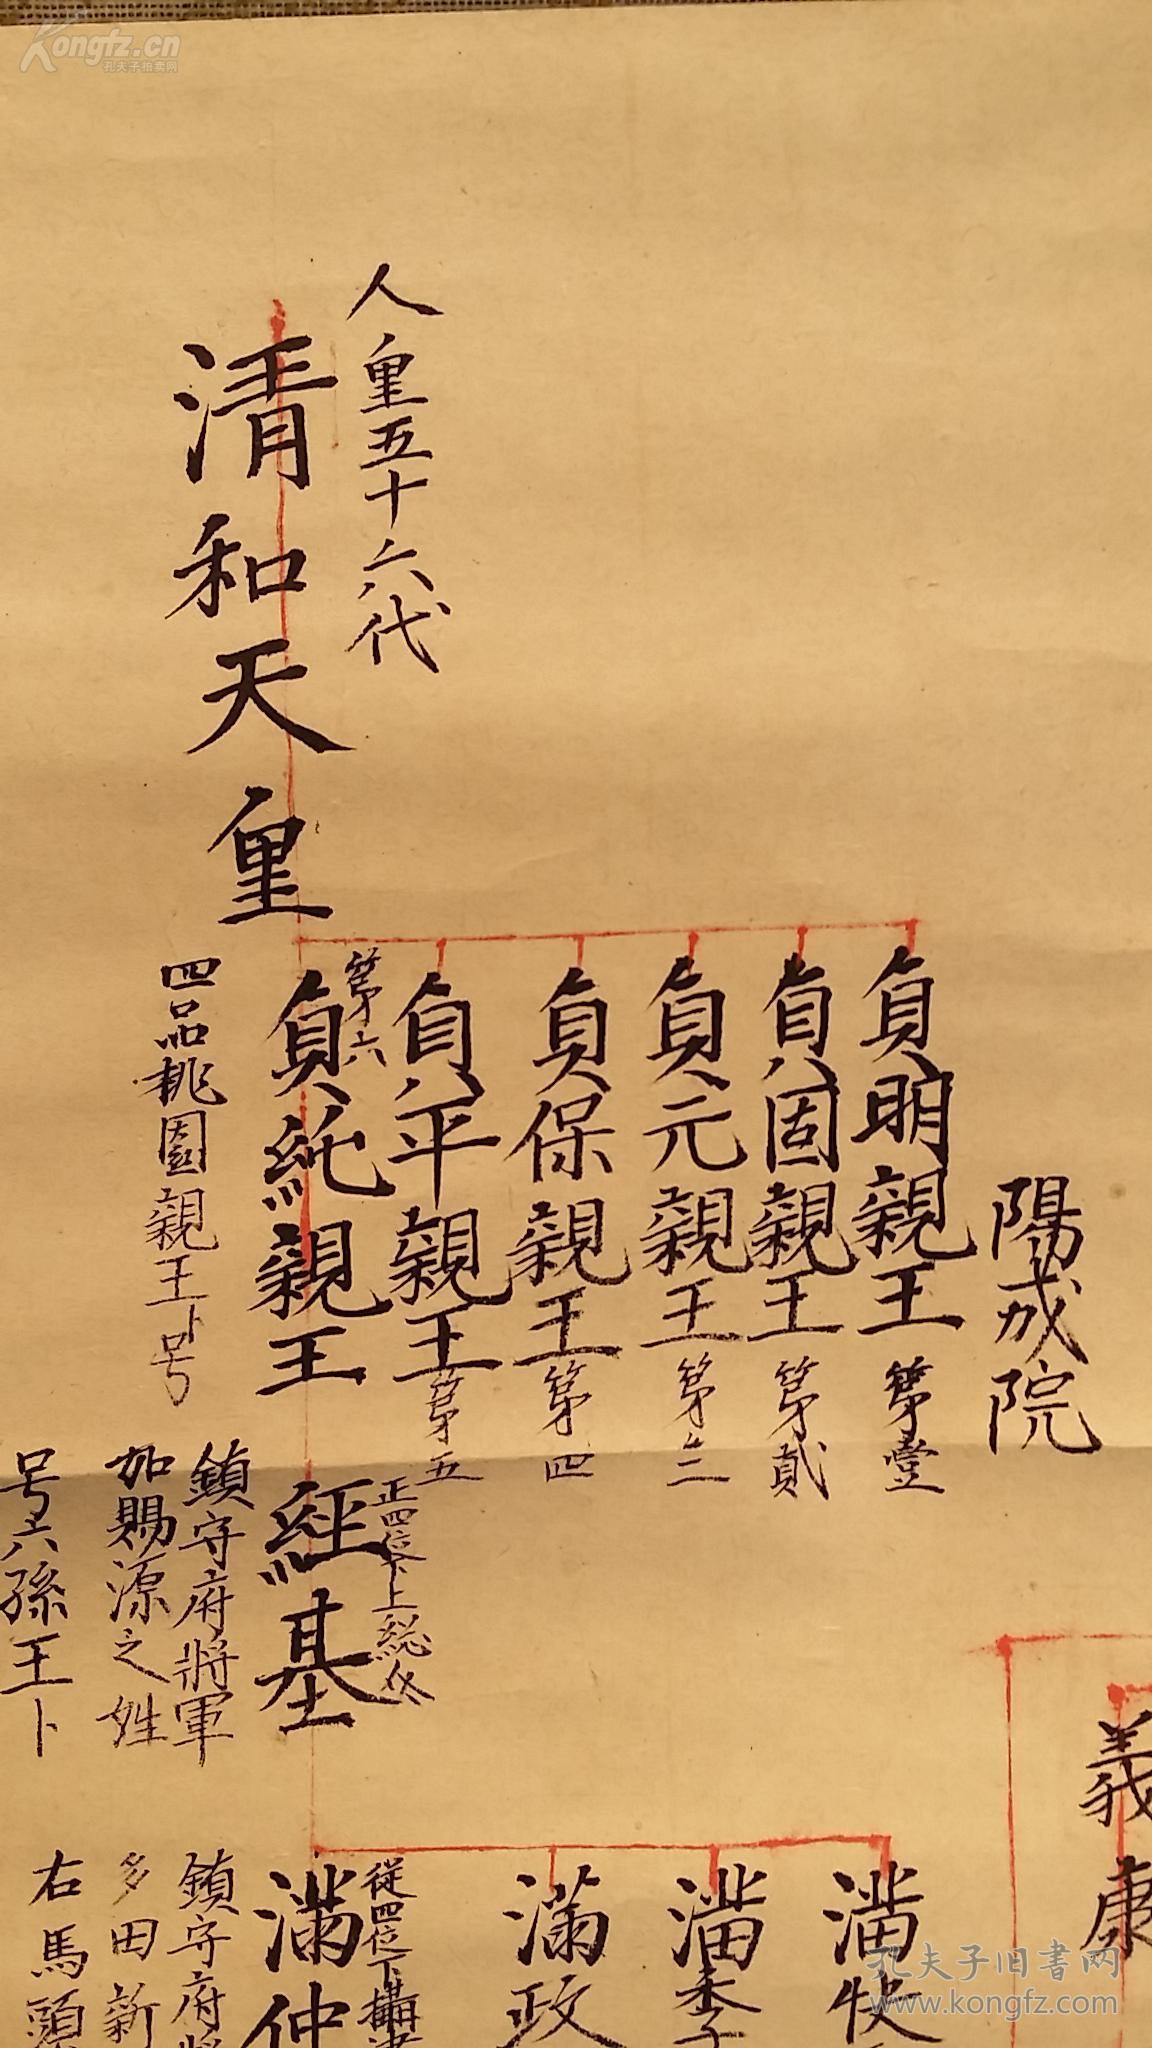 Kongfz.cn
孔夫子拍卖网
人皇五十六代
清和天皇
陽成院
貞明親王 第壹
貞固親王 第貳
貞元親王 第三
貞保親王 第四
貞平親王 第五
第六
貞純親王
四品桃園親王ト号
正四位下上総介
經基
鎮守府將軍
加賜源之姓
号六孫王ト
義康
満快
満季
満政
従四位下攝津
満仲
鎮守府將
多田新
右馬頭
孔夫子旧书网
www.kongfz.com